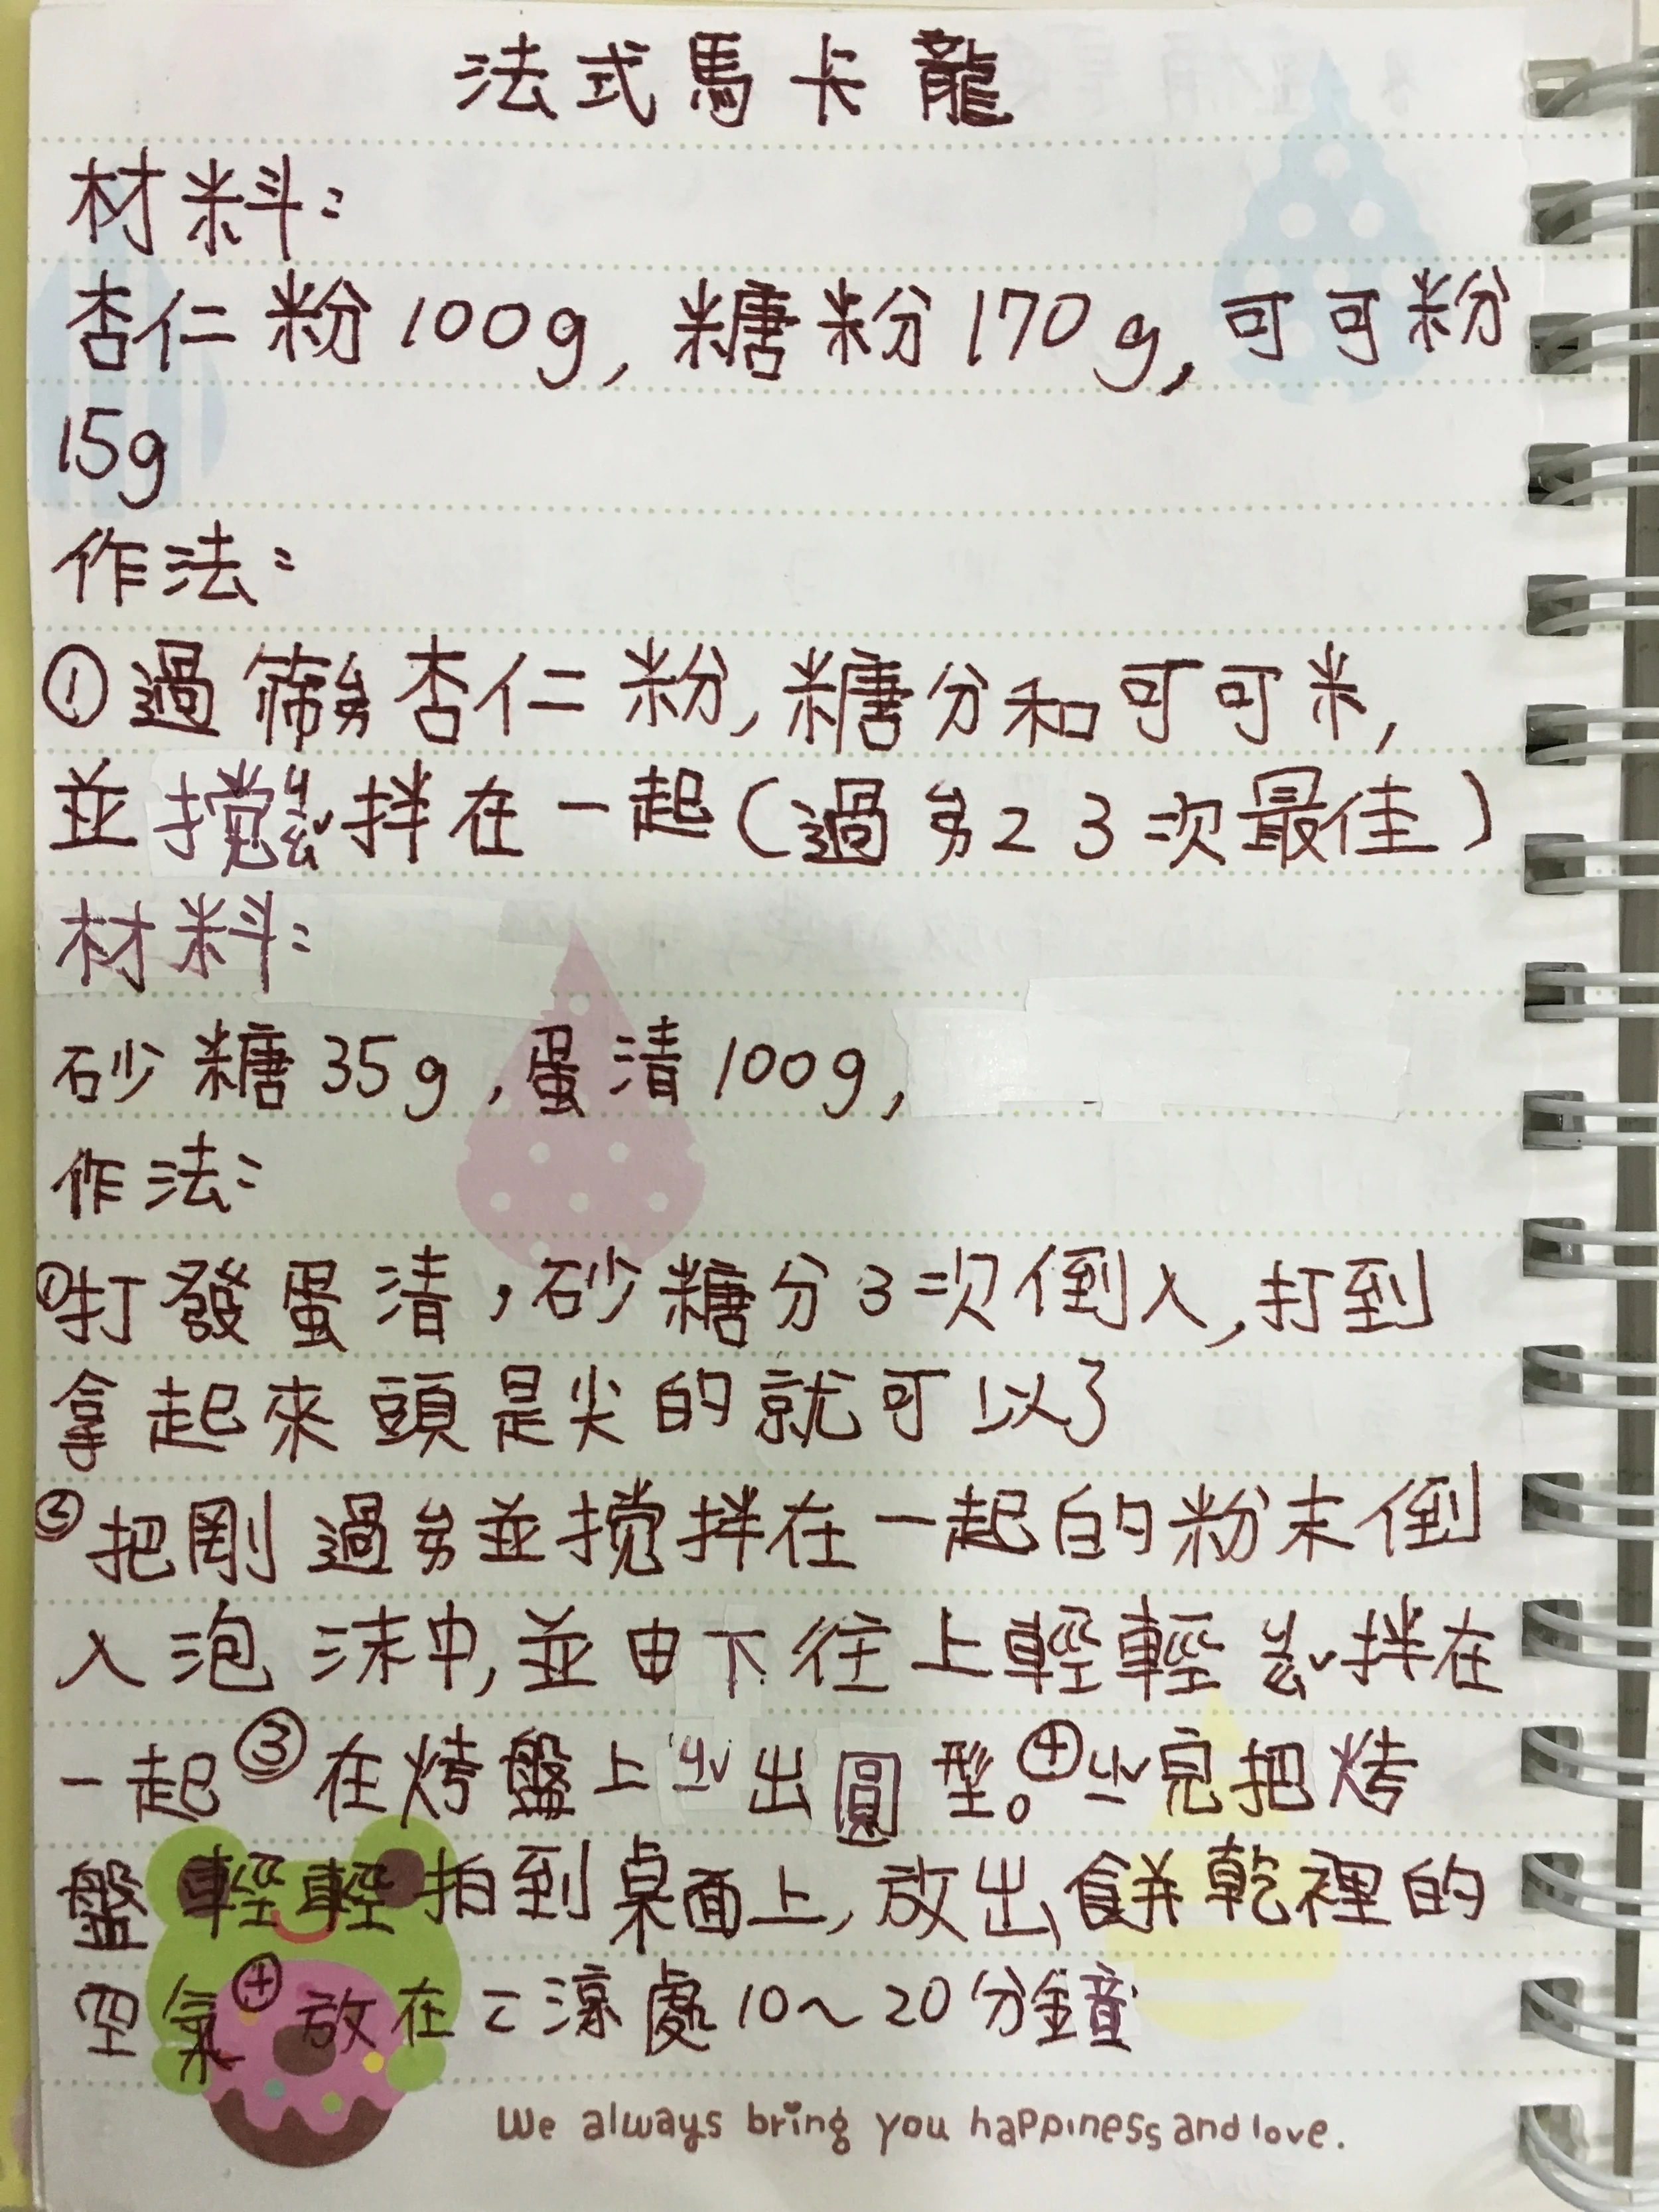 法式馬卡龍
材料:
杏仁粉100g,糖粉170g,可可粉
15g
作法:
①過篩ㄕㄞ杏仁粉,糖分和可可米,
並攪ㄐㄧㄠˇ拌在一起(過ㄕㄞ2 3次最佳)
材料:
砂糖35g,蛋清100g,
作法:
①打發蛋清,砂糖分3次倒入,打到
拿起來頭是尖的就可以了
②把剛過ㄕㄞ並攪拌在一起的粉末倒
入泡沫中,並由下往上輕輕ㄐㄧㄠˇ拌在
一起③在烤盤上ㄐㄧˇ出圓型。④ㄐㄧˇ完把烤
盤輕輕拍到桌面上,放出餅乾裡的
空氣④放在涼處10~20分鐘
We always bring you happiness and love.